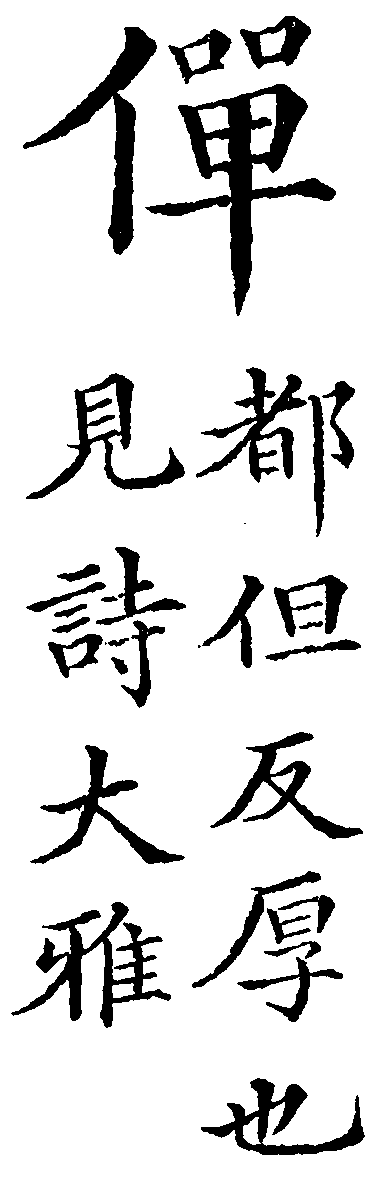 僤
都但反厚也
見詩大雅